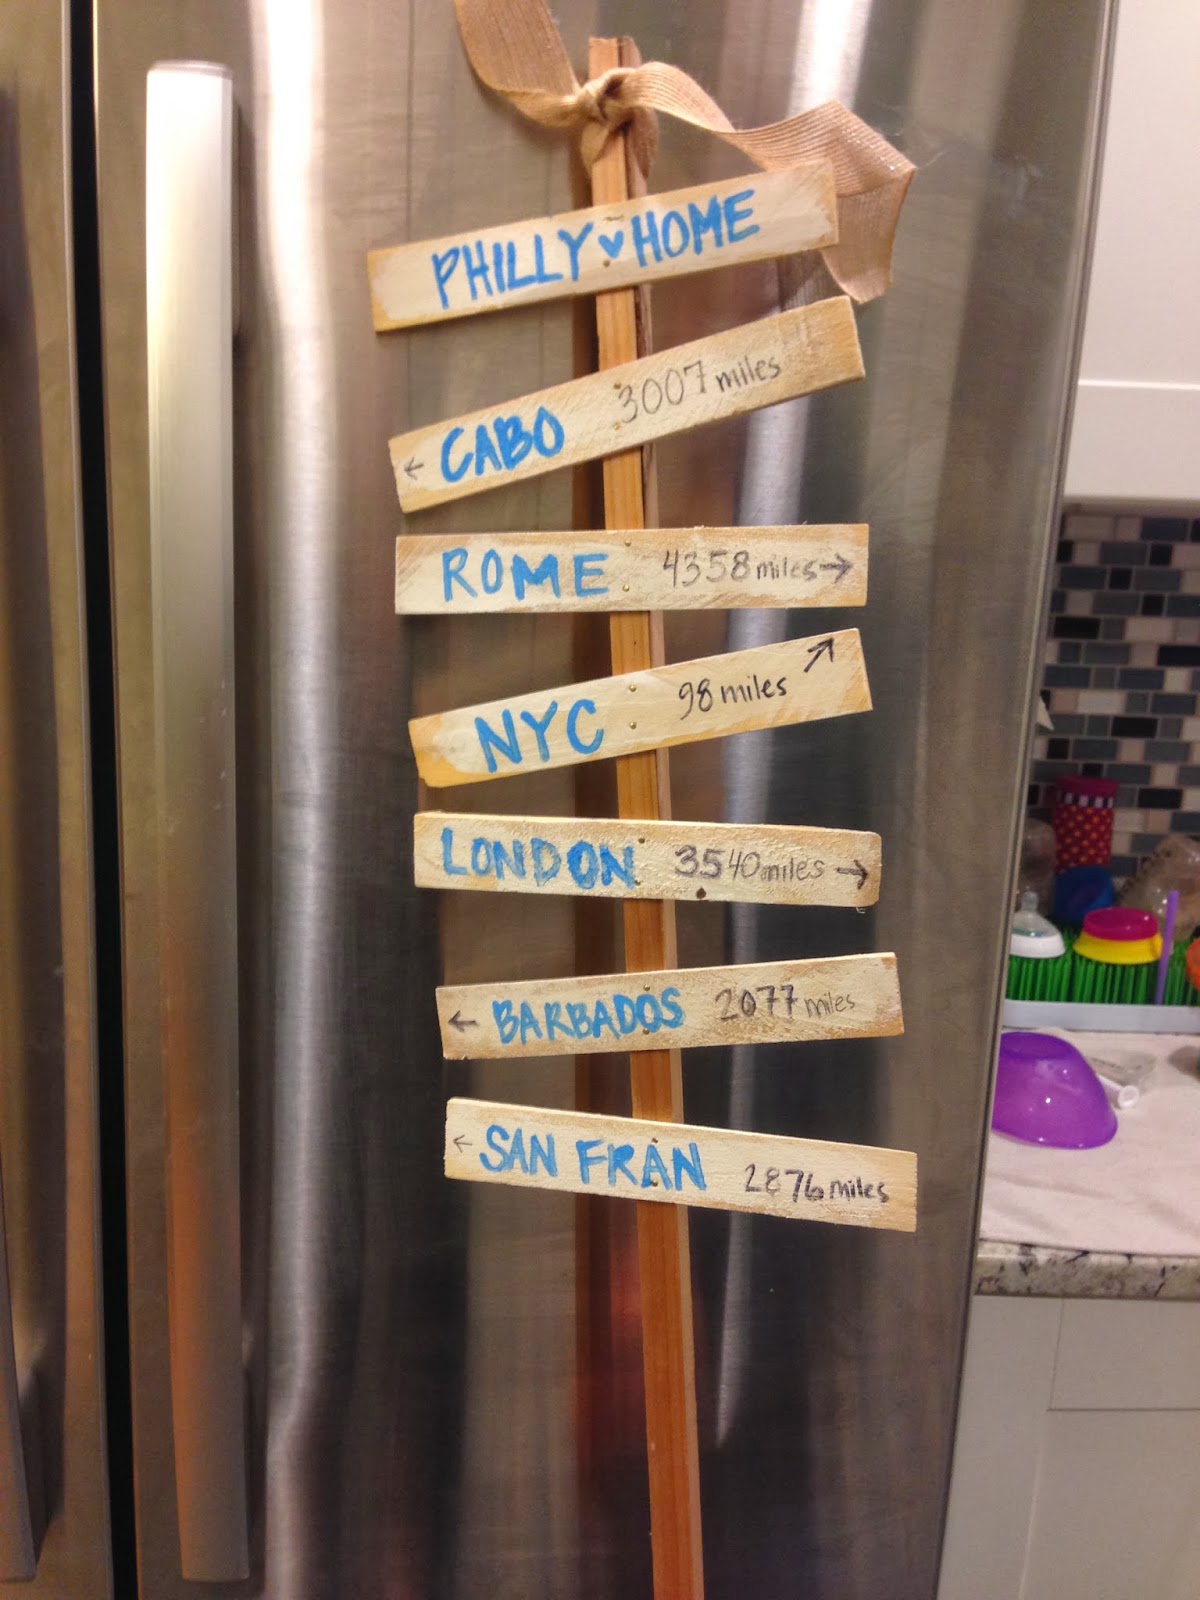 PHILLY ♥ HOME
← CABO 3007 miles
ROME 4358 miles →
NYC 98 miles ↗
LONDON 3540 miles →
← BARBADOS 2077 miles
← SAN FRAN 2876 miles